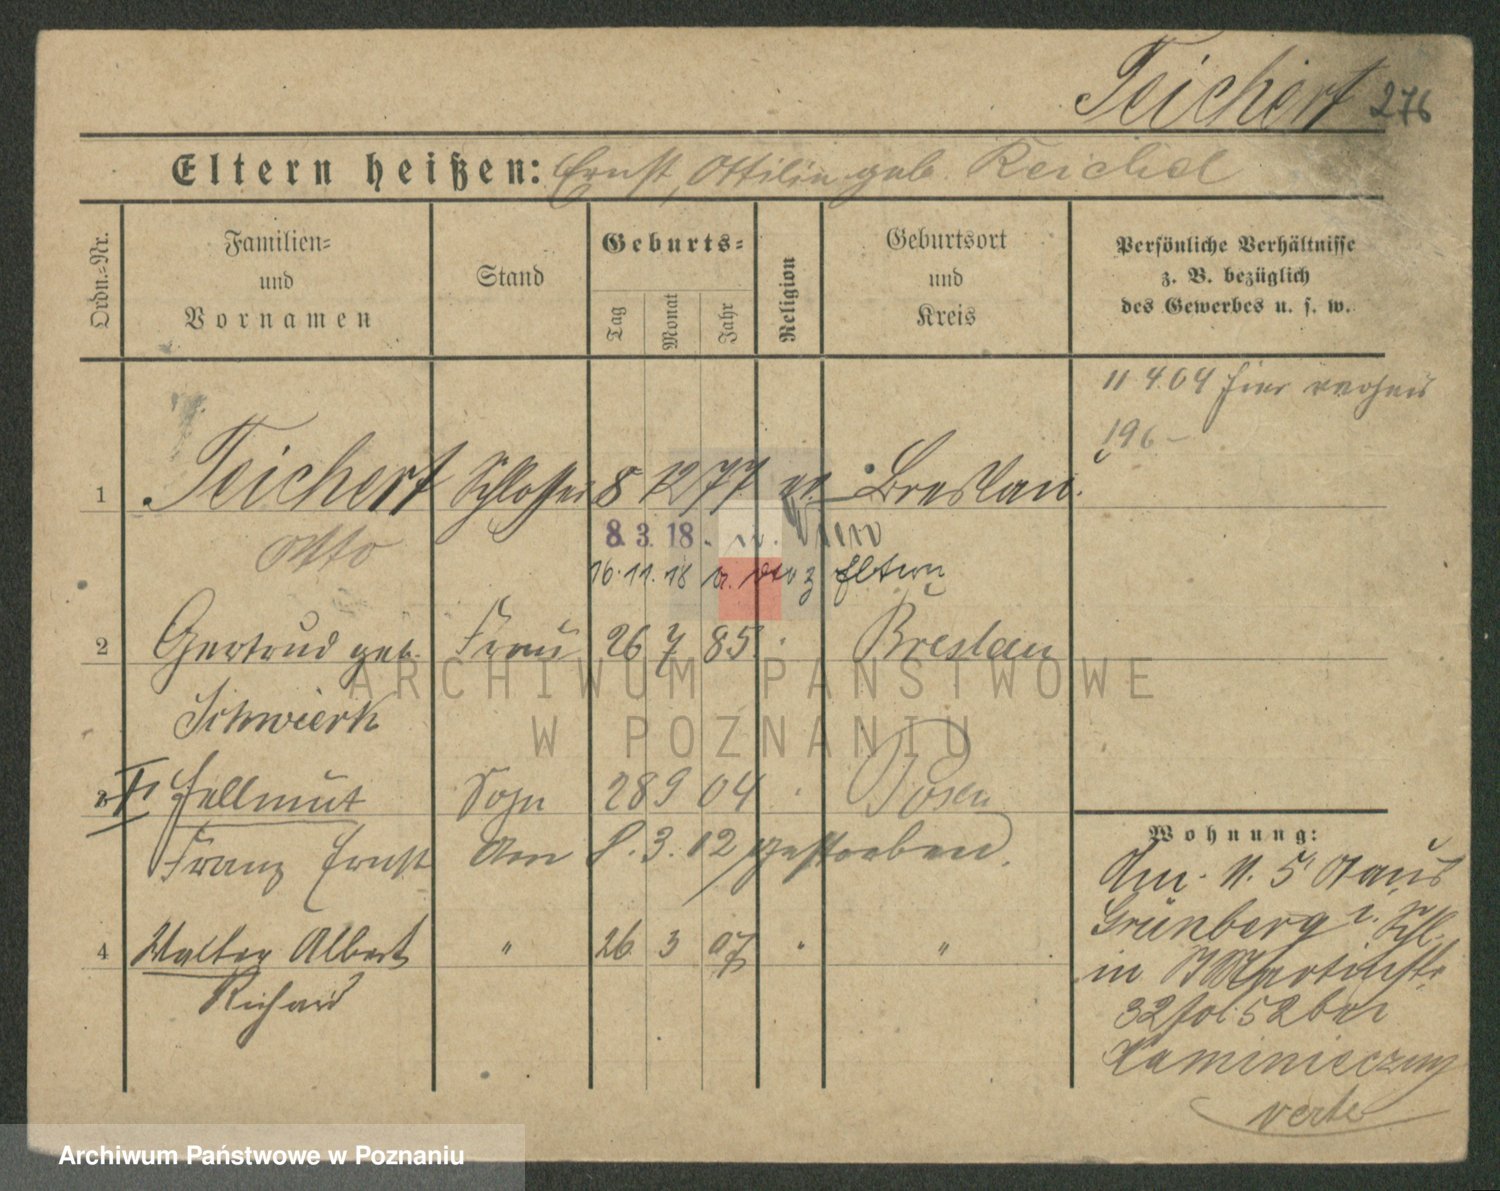 Teichert 276
Eltern heißen: Ernst, Ottilie geb. Reichel
Ordn.=Nr.
Familien=
und
Vornamen
Stand
Geburts=
Tag
Monat
Jahr
Religion
Geburtsort
und
Kreis
Persönliche Verhältnisse
z. B. bezüglich
des Gewerbes u. s. w.
11 4 04 hier
196-
1 Teichert Schlosser 8 12 77 ev Breslau
Otto
8. 3. 18.
16. 11. 18 Eltern
2 Gertrud geb. Frau 26 7 85 Breslau
Schwierk
Hellmut Sohn 28 9 04 Posen
Franz Ernst Am 8. 3. 12 gestorben.
4 Walter Albert " 26 3 07 " "
Richard
Wohnung:
Am 11. 5 04 aus
Grünberg i. Schl.
in Martinstr
32 bei
verte
ARCHIWUM PAŃSTWOWE
W POZNANIU
Archiwum Państwowe w Poznaniu